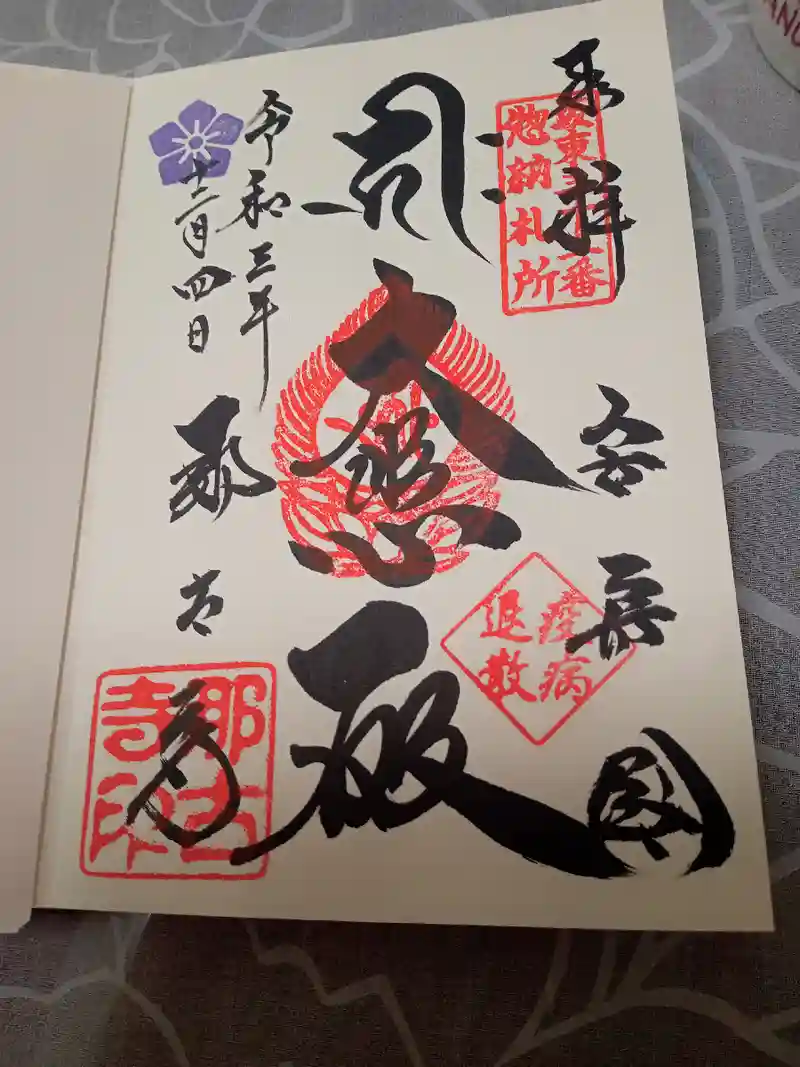 奉拝
坂東三十三番
惣納札所
安房国
疫病
退散
大悲殿
令和三年
十二月四日
那古寺
那古
寺印